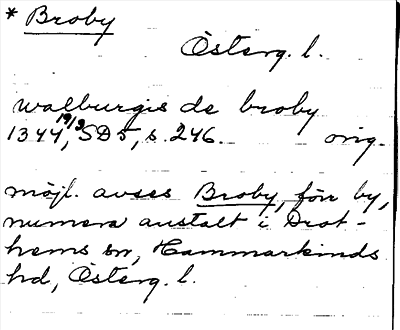 * Broby
Österg. l.
walburgis de broby
1344 19/2, SD5, s. 246. orig.
möjl. avses Broby, förr by,
numera anstalt i Drot-
hems sn, Hammarkinds
hd, Österg. l.